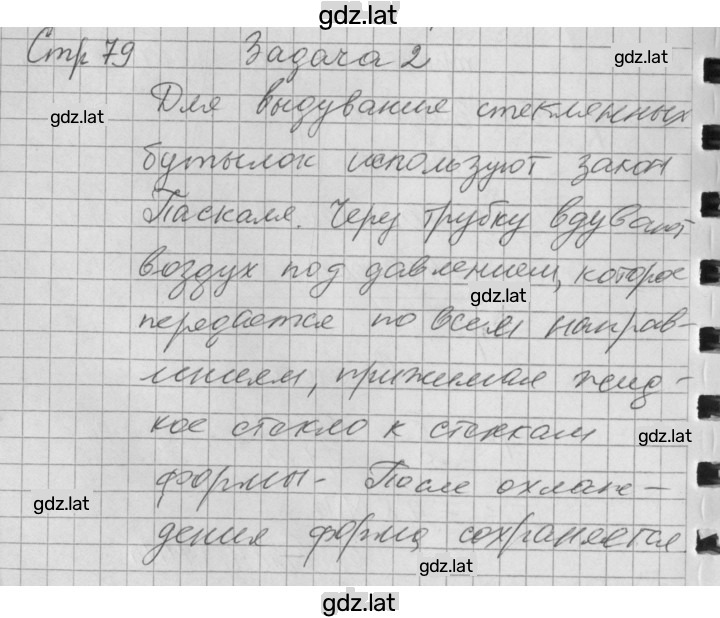 gdz.lat
Стр 79 Задача 2
gdz.lat
Для выдувания стеклянных
gdz.lat
бутылок используют закон
Паскаля. Через трубку вдувают
воздух под давлением, которое
gdz.lat
передается по всем направ-
лениям, прижимая жид-
кое стекло к стенкам
gdz.lat
формы. После охлаж-
gdz.lat
дения форма сохраняется
gdz.lat
gdz.lat